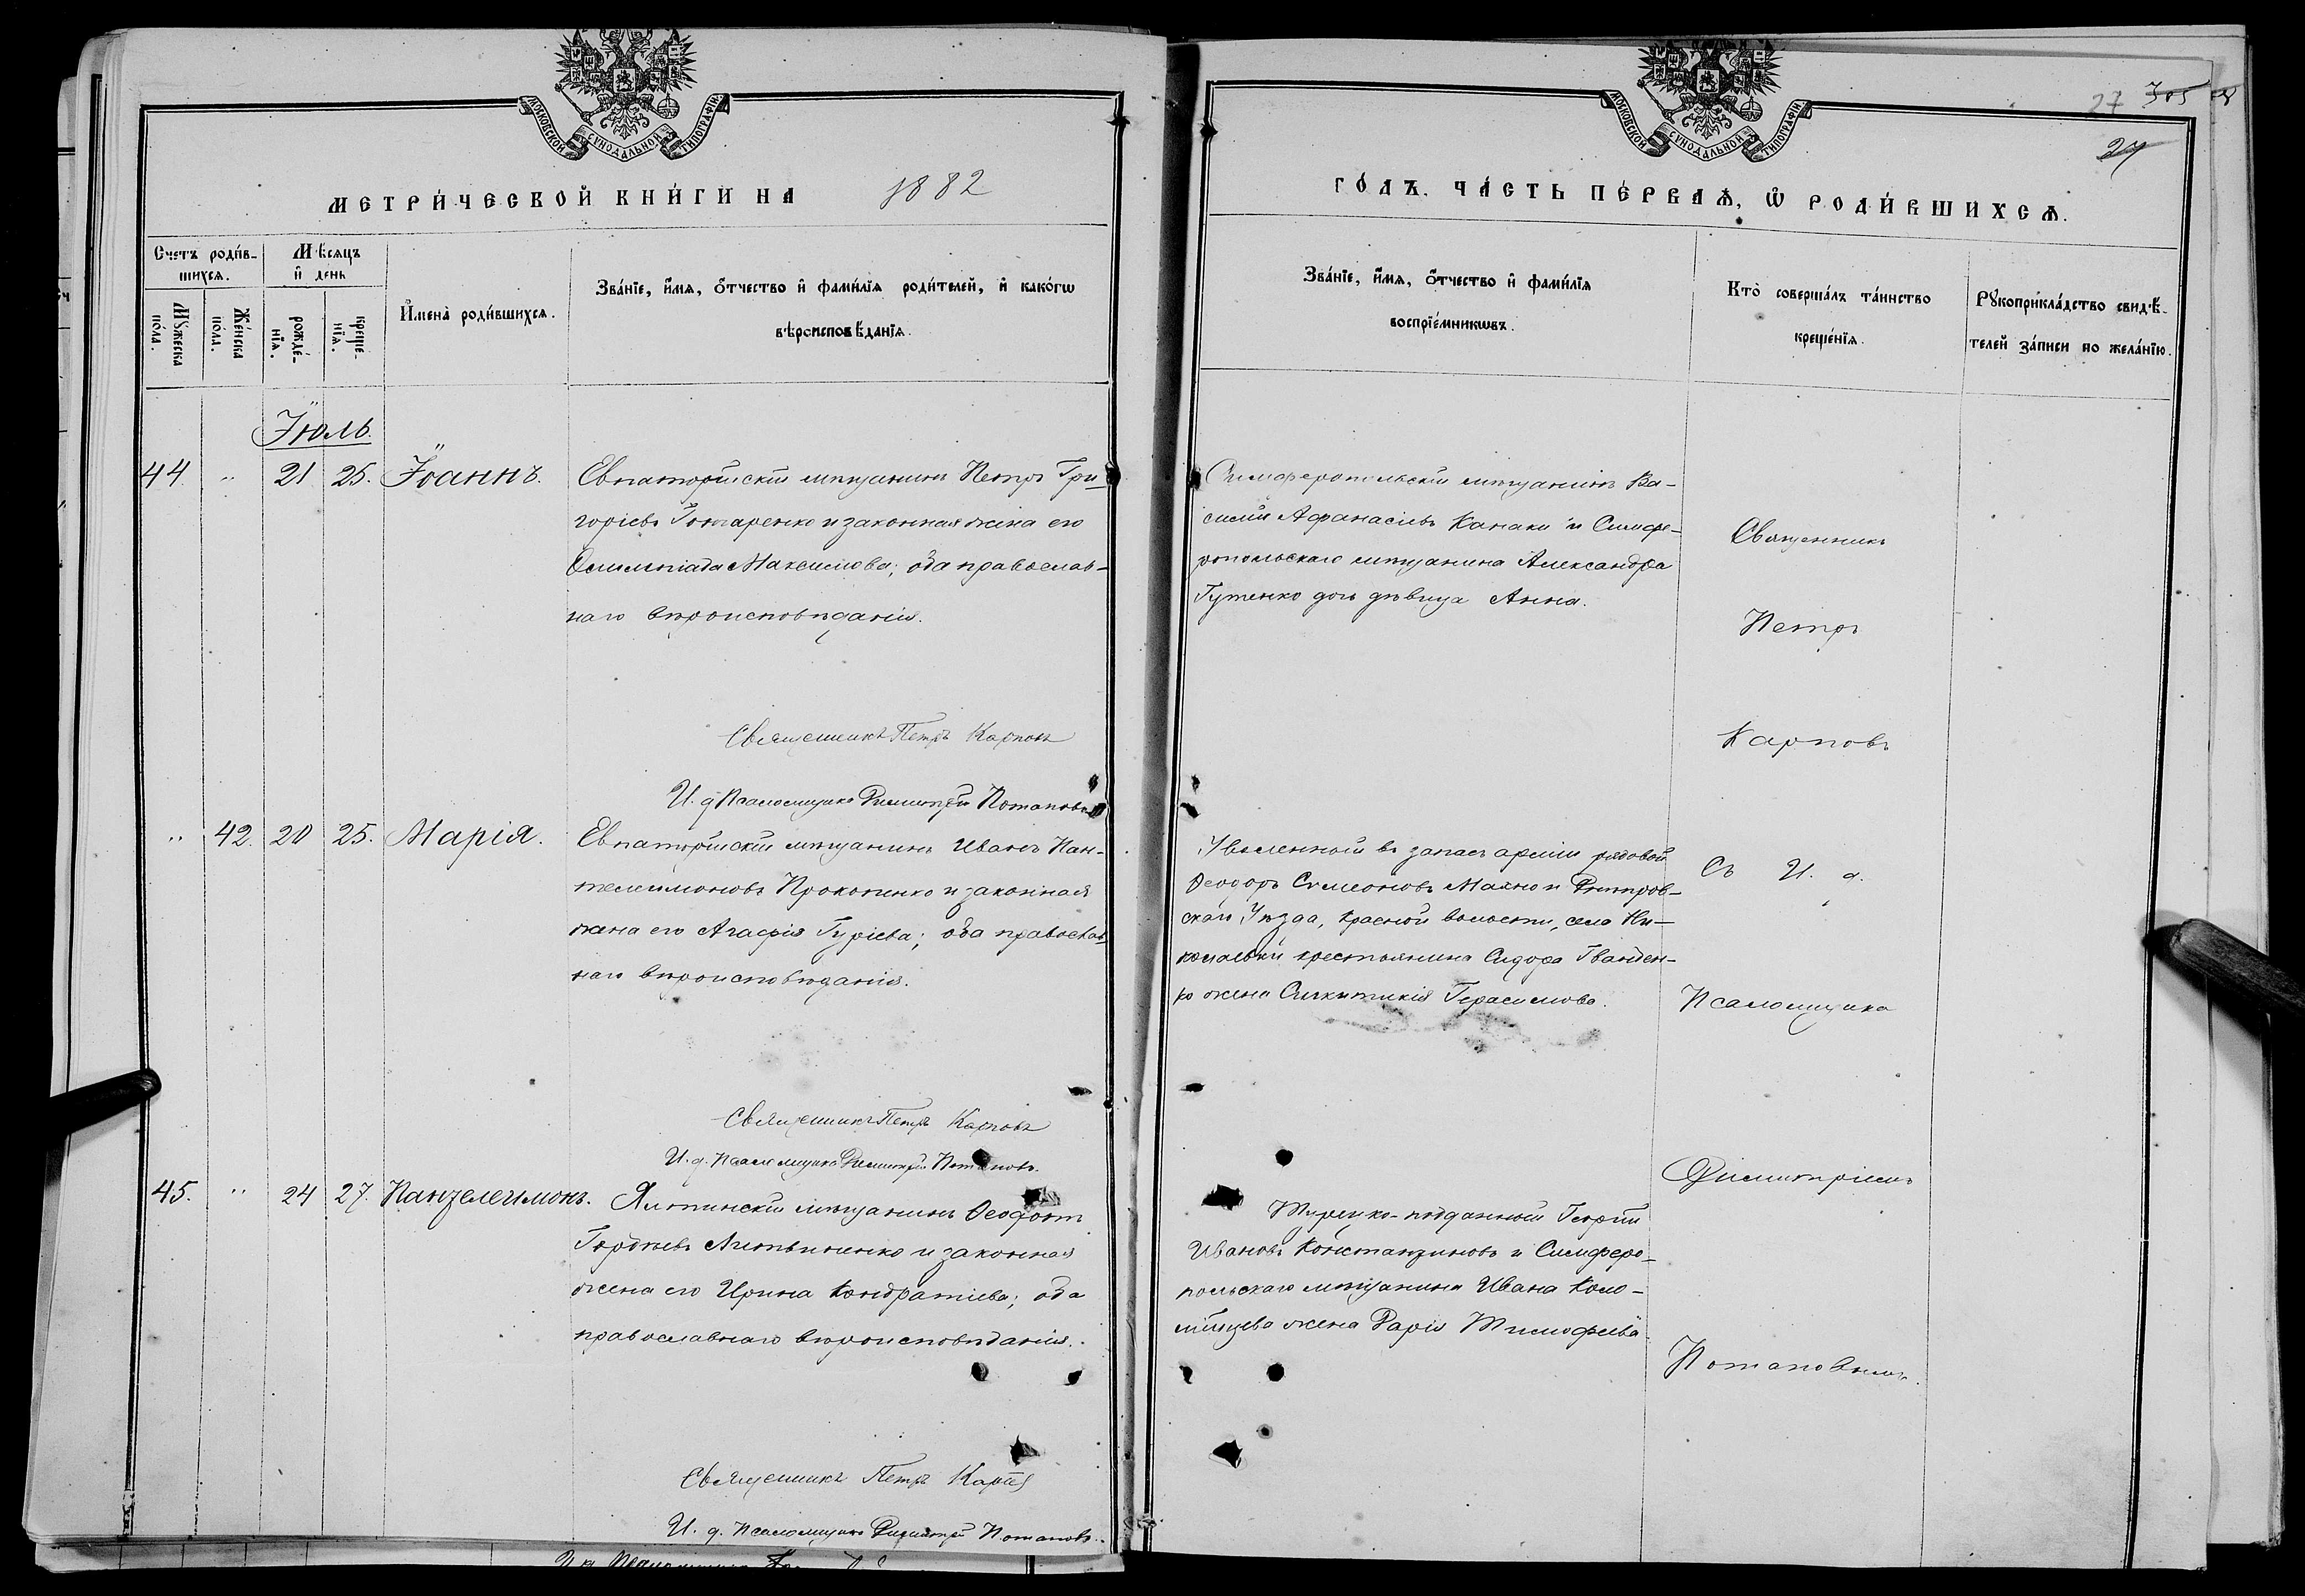 МОСКОВСКОЙ СѴНОДАЛЬНОЙ ТИПОГРАФІИ.
МЕТРИ́ЧЕСКОЙ КНИ́ГИ НА 1882
Счетъ роди́в-
шихсѧ.
Мѣсѧцъ
и҆ день
Мꙋ́жеска
по́ла.
Же́нска
по́ла.
рожде́-
нїѧ.
креще́-
нїѧ.
И҆мена̀ роди́вшихсѧ.
Зва́нїе, и҆́мѧ, ѻ҆́тчество и҆ фами́лїѧ роди́телей, и҆ како́гѡ
вѣроисповѣ́данїѧ.
Іюль.
44 „ 21 25. Іоаннъ.
Евпаторійскій мѣщанинъ Петръ Гри-
горіевъ Гончаренко и законная жена его
Олимпіада Максимова; оба православ-
наго вѣроисповѣданія.
Священникъ Петръ Карповъ
И. д. Псаломщика Димитрій Потаповъ
„ 42. 20 25. Марія.
Евпаторійскій мѣщанинъ Иванъ Пан-
телеимоновъ Прокопенко и законная
жена его Агафія Гуріева; оба православ-
наго вѣроисповѣданія.
Священникъ Петръ Карповъ
И. д. Псаломщика Димитрій Потаповъ.
45. „ 24 27. Пантелеимонъ.
Ялтинскій мѣщанинъ Ѳеофонъ
Гордѣевъ Литвиненко и законная
жена его Ирина Кондратіева; оба
православнаго вѣроисповѣданія.
Священникъ Петръ Карповъ
И. д. Псаломщика Димитрій Потаповъ.
МОСКОВСКОЙ СѴНОДАЛЬНОЙ ТИПОГРАФІИ.
27 305
27
ГО́ДЪ. ЧА́СТЬ ПЕ́РВАѦ, Ѡ҆ РОДИ́ВШИХСѦ.
Зва́нїе, и҆́мѧ, ѻ҆́тчество и҆ фами́лїѧ
воспрїе́мникѡвъ.
Кто̀ соверша́лъ та́инство
креще́нїѧ.
Рꙋкоприкла́дство свидѣ́-
телей за́писи по жела́нїю.
Симферопольскій мѣщанинъ Ва-
силій Афанасіевъ Канаки и Симфе-
ропольскаго мѣщанина Александра
Гутенко дочь дѣвица Анна.
Священникъ
Петръ
Карповъ
Уволенный въ запасъ арміи рядовой
Ѳеодоръ Симеоновъ Махно и Днѣпров-
скаго Уѣзда, Красной волости, села Ни-
колаевки крестьянина Сидора Гванден-
ко жена Синклитикія Герасимова.
Съ И. д.
Псаломщика
Димитріемъ
Потаповымъ.
Турецко-подданный Георгій
Ивановъ Константиновъ и Симферо-
польскаго мѣщанина Ивана Коло-
мійцева жена Дарія Тимофеева